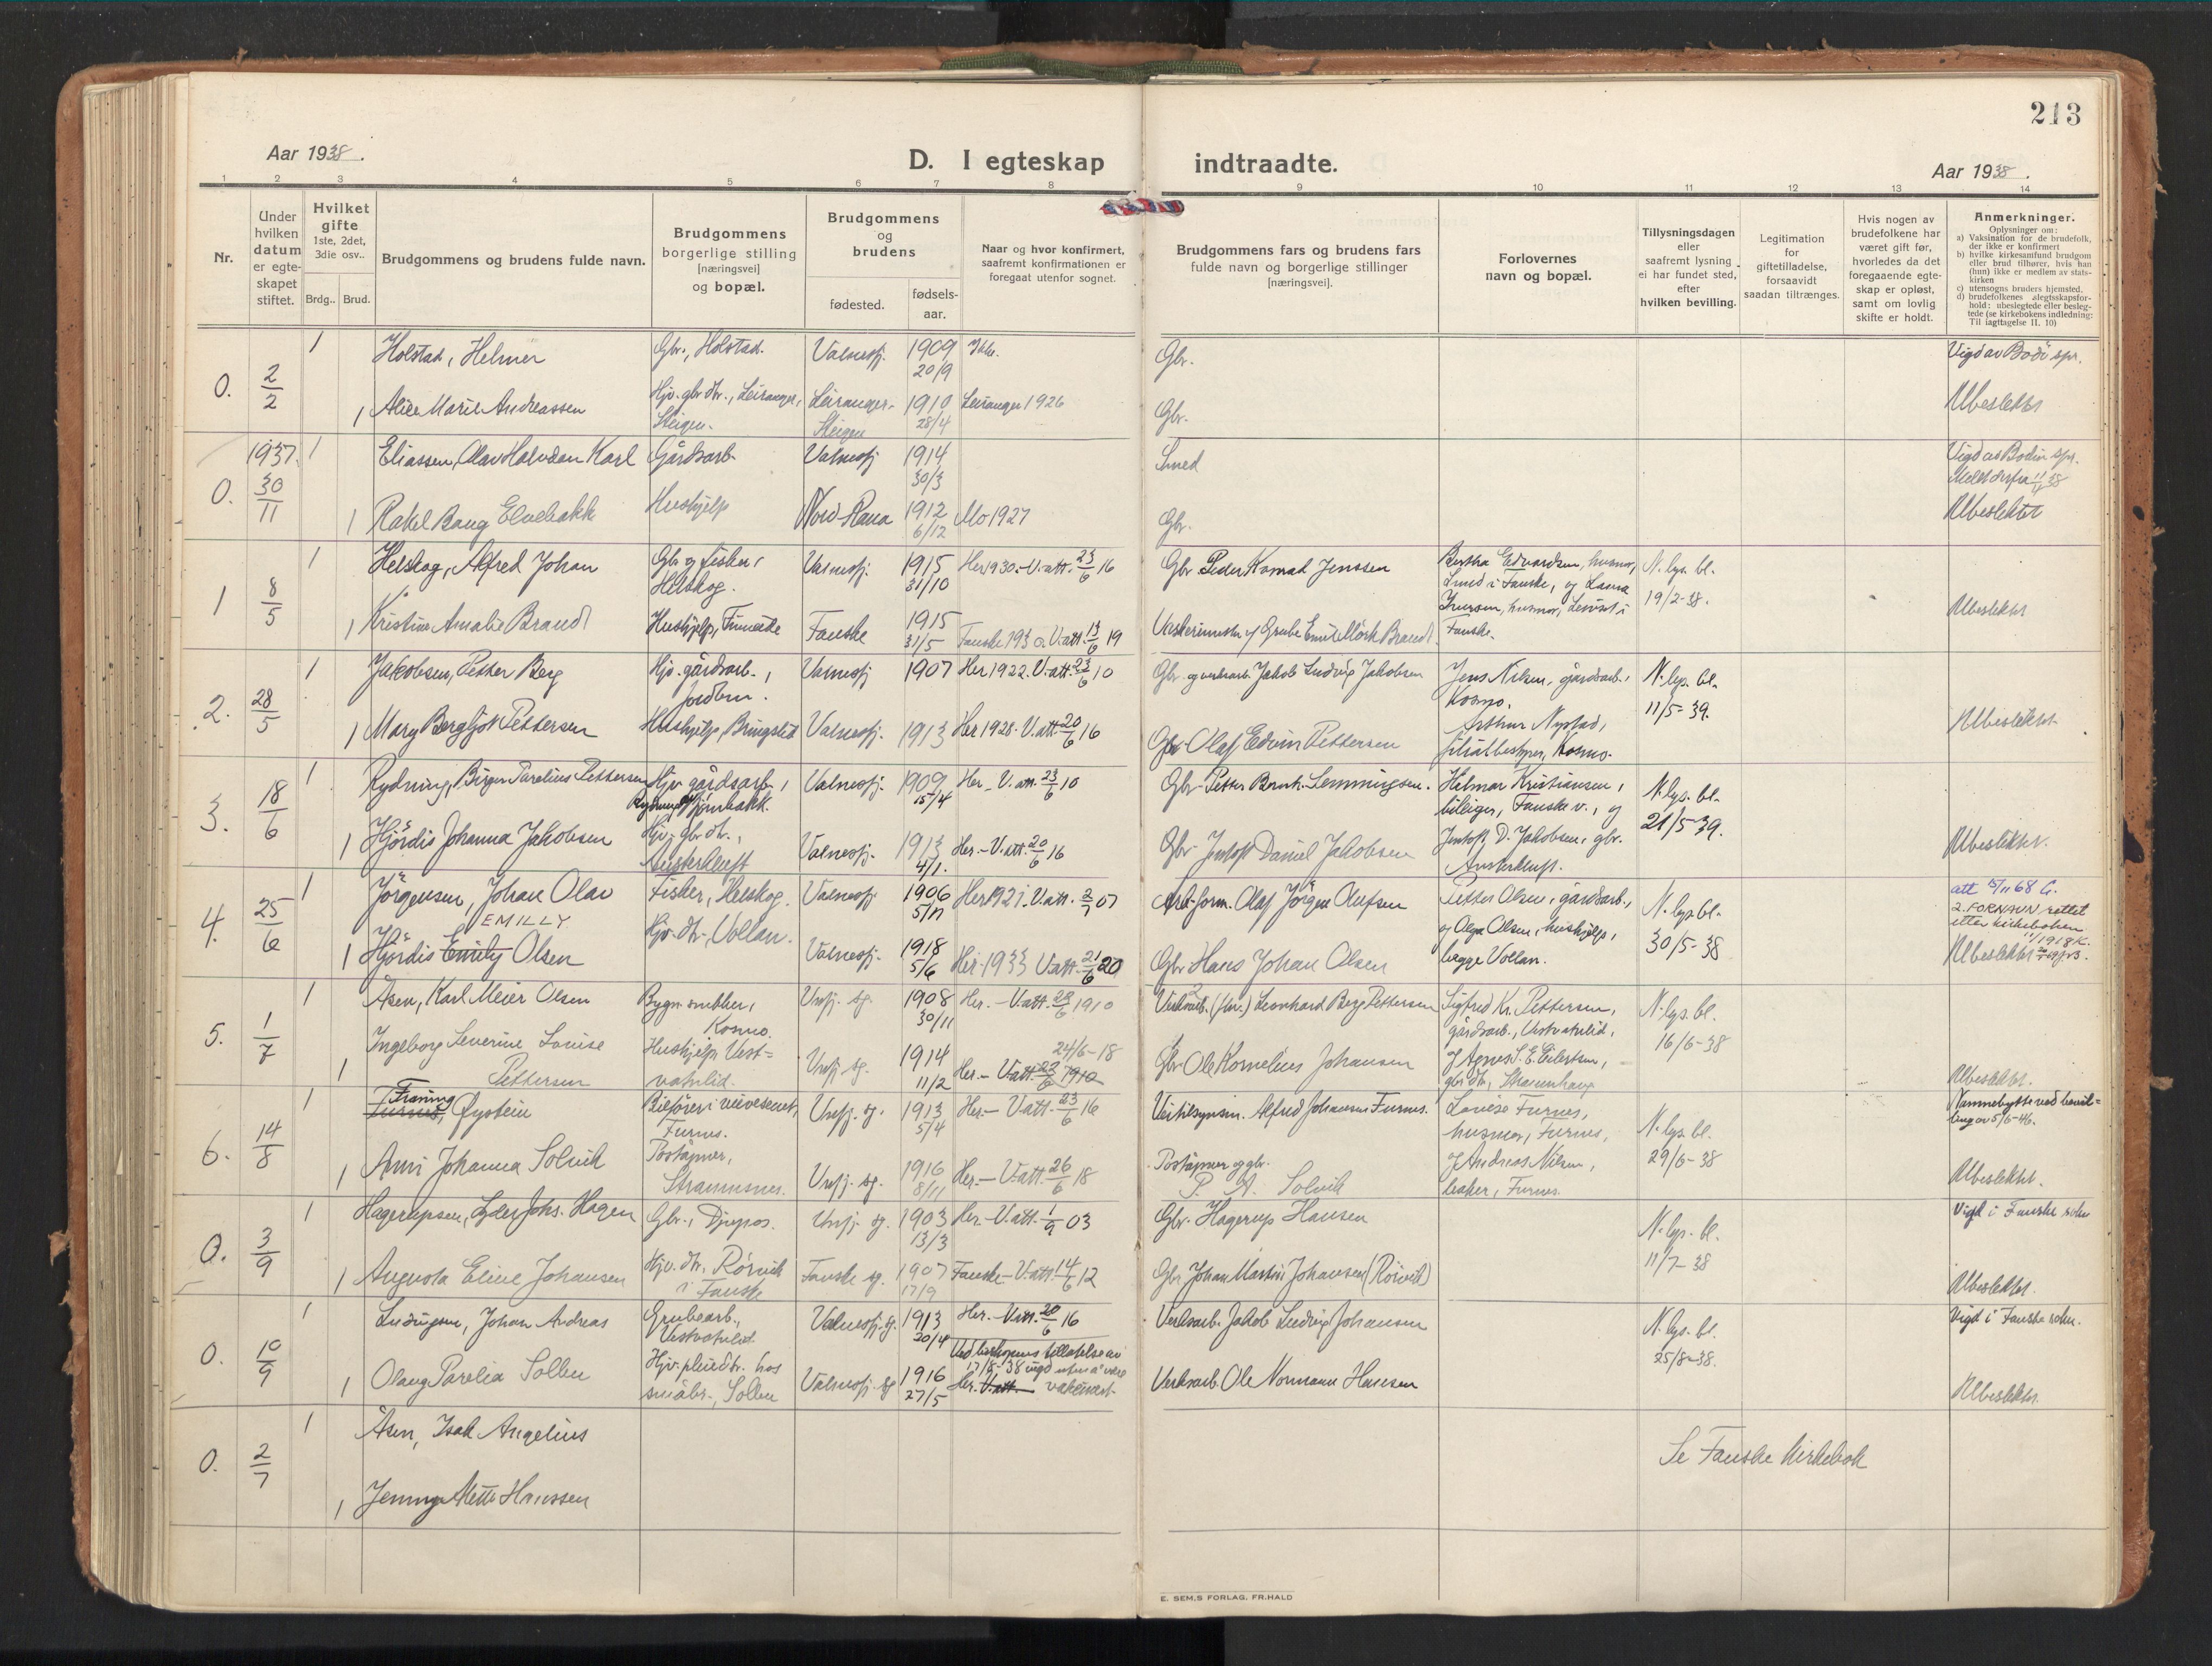 213
Aar 1938.
D. I egteskap indtraadte.
Aar 1938.
1 2 3 4 5 6 7 8 9 10 11 12 13 14
Nr.
Under hvilken datum er egteskapet stiftet.
Hvilket gifte 1ste, 2det, 3die osv..
Brdg.. Brud.
Brudgommens og brudens fulde navn.
Brudgommens borgerlige stilling [næringsvei] og bopæl.
Brudgommens og brudens
fødested.
fødsels-aar.
Naar og hvor konfirmert, saafremt konfirmationen er foregaat utenfor sognet.
Brudgommens fars og brudens fars fulde navn og borgerlige stillinger [næringsvei].
Forlovernes navn og bopæl.
Tillysningsdagen eller saafremt lysning ei har fundet sted, efter hvilken bevilling.
Legitimation for giftetilladelse, forsaavidt saadan tiltrænges.
Hvis nogen av brudefolkene har været gift før, hvorledes da det foregaaende egteskap er opløst, samt om lovlig skifte er holdt.
Anmerkninger.
Oplysninger om:
a) Vaksination for de brudefolk, der ikke er konfirmert
b) hvilke kirkesamfund brudgom eller brud tilhører, hvis han (hun) ikke er medlem av statskirken
c) utensogns bruders hjemsted,
d) brudefolkenes slegtsskapsforhold: ubeslegtede eller beslegtede (se kirkebokens indledning: Til iagttagelse II. 10)
0. 2/2 1 Holstad, Helmer Gbr., Holstad. Valnesfj. 1909 20/9 Gbr. Vigd av Bodö spr.
1 Alice Marie Andreassen Hjv. gbr dtr., Leiranger, Steigen. Leiranger- Steigen 1910 28/4 Leiranger 1926 Gbr. Ubeslektet
0. 1937 30/11 1 Eliassen, Olav Halvdan Karl Gårdsarb. Valnesfj 1914 30/3 Smed Vigd av Bodin spr.
1 Rakel Baug Elvebakk Hushjelp Nord-Rana 1912 6/12 Mo 1927 Gbr. Ubeslektet
1 8/5 1 Helskog, Alfred Johan Gbr og fisker, Helskog. Valnesfj. 1915 31/10 Her 1930.- V.att. 23/6 16 Gbr Peder Konrad Jenssen Bertha Edvardsen, husmor, Lund i Fauske, og Laura Iversen, husmor, i Fauske. N. lys. bl. 19/2-38.
1 Kristine Amalie Brandt Hushjelp, Finneide Fauske 1915 31/5 Fauske 1930 V.att. 13/6 19 Vaskerimester v/ Grube Emil Mörk Brandt Ubeslektet
2. 28/5 1 Jakobsen, Petter Berg Hjv. gårdsarb., Jordbru. Valnesfj 1907 Her 1922. V.att. 23/6 10 Gbr og verksarb. Jakob Ludvig Jakobsen Jens Nilsen, gårdsarb., Kosmo. Arthur Nystad, filialbestyrer, Kosmo. N. lys. bl. 11/5-39.
1 Mary Bergljot Pettersen Hushjelp, Bringslid Valnesfj. 1913 Her 1928. V.att. 20/6 16 Gbr Olaf Edvin Pettersen Ubeslektet
3. 18/6 1 Rydning, Birger Parelius Pettersen Hjv gårdsarb., Valnesfj. 1909 15/4 Her - V. att. 23/6 10 Gbr Petter Bernh. Lemmingsen. Helmar Kristiansen, bileiger, Fauske v., og Jentoft D. Jakobsen, gbr. Austerkluft. N. lys. bl. 21/5-39.
1 Hjördis Johanna Jakobsen Hjv. gbr. dtr., Austerkluft Valnesfj. 1913 4/1. Her.- V.att. 20/6 16 Gbr Jentoft Daniel Jakobsen Ubeslektet.
4. 25/6 1 Jörgensen, Johan Olav Fisker, Helskog. Valnesfj. 1906 5/11 Her 1921. V.att. 2/7 07 Arb.form. Olaf Jörgen Olufsen Petter Olsen, gårdsarb., og Olga Olsen, hushjelp, begge Vollan. N. lys. bl. 30/5-38 att 5/11 68 G.
EMILLY
2. FORNAVN rettet etter kirkeboken
1 Hjördis Emily Olsen Hjv. dtr., Vollan. Valnesfj. 1918 5/6 Her 1933 V.att. 21/6 20 Gbr Hans Johan Olsen Ubeslektet
5. 1/7 1 Åsen, Karl Meier Olsen Bygn.snekker, Kosmo. Vnsfj. sg. 1908 30/11 Her.- V.att. 28/6 1910 Verksarb. Leonhard Berg Pettersen Sigfred Kr. Pettersen, gårdsarb., Vestvatnlid, og Agnes S. E. Eilertsen, gbr dtr, Straumhaug N. lys. bl. 16/6-38
1 Ingeborg Severine Louise Pettersen Hushjelp Vestvatnlid. Vnsfj. sg. 1914 11/2 Her.- V.att. 22/6 1910 24/6-18 Gbr Ole Kornelius Johansen Ubeslektet.
6. 14/8 1 Furnes, Framing Øystein Bilförer i veivesenet, Furnes. Vnsfj. sg. 1913 5/4 Her.- V.att. 23/6 16 Veitilsynsm. Alfred Johansen Furnes. Lovise Furnes, husmor, Furnes, og Andreas Nilsen, baker, Furnes. N. lys. bl. 29/6-38 Navnebytte ved bevilling av 5/6-46.
1 Anni Johanna Solvik Poståpner, Straumsnes. Vnsfj. sg. 1916 8/11 Her.- V.att. 26/6 18 Poståpner og gbr. P. A. Solvik Ubeslektet.
0. 3/9 1 Hagerupsen, Lyder Johs. Hagen Gbr., Djupos. Vnsfj. sg. 1903 13/3 Her.- V.att. 1/9 03 Gbr. Hagerup Hansen N. lys. bl. 11/7-38 Vigd i Fauske sokn
1 Augusta Eline Johansen Hjv. dtr. Rörvik i Fauske Fauske sg. 1907 17/9 Fauske- V.att. 14/6 12 Gbr Johan Martin Johansen (Rörvik) Ubeslektet.
0. 10/9 1 Ludvigsen, Johan Andreas Grubearb., Vestvatnlid Valnesfj. sg. 1913 20/4 Her.- V.att. 20/6 16 Verksarb. Jakob Ludvig Johansen N. lys. bl. 25/8-38. Vigd i Fauske sokn.
Ved biskopens tillatelse av 17/8-38 vigd uten å være vaksinert
1 Olaug Parelia Sollen Hjv. pleiedtr. hos småbr., Sollen Valnesfj. sg 1916 27/5 Her. V.att. Verksarb. Ole Normann Hansen Ubeslektet.
0. 2/7 1 Åsen, Isak Angelius Se Fauske kirkebok
1 Jenny Mette Hanssen
E. SEM.S FORLAG, FR.HALD